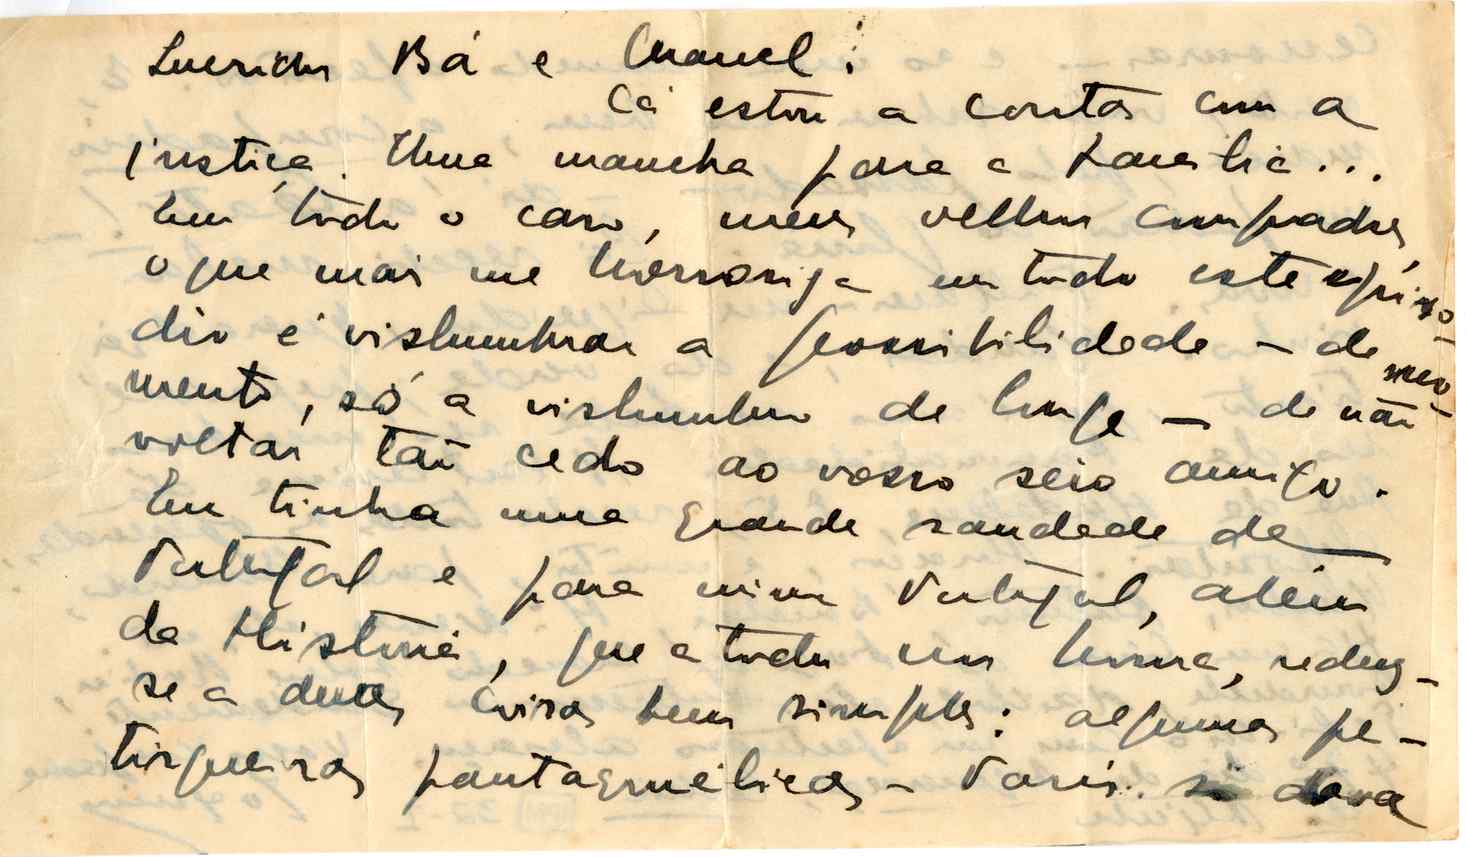 Queridos Bá e Manuel:
Cá estou a contas com a
justiça. Uma mancha para a família...
Em todo o caso, meus velhos compadres,
o que mais me horroriza em todo este episó-
dio é vislumbrar a possibilidade – de mo-
mento, só a vislumbro de longe – de não
voltar tão cedo ao vosso seio amigo.
Eu tinha uma grande saudade de
Portugal e para mim Portugal, além
da História, que a todos nos honra, reduz-
se a duas coisas bem simples: algumas pe-
tisqueiras pantagruélicas – Paris só dava